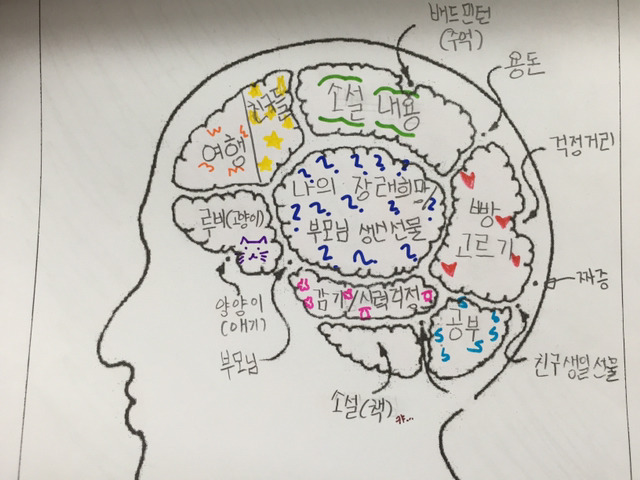 배드민턴
(추억)
용돈
친구들
소설 내용
여행
걱정거리
나의 장래희망
부모님 생신선물
빵
고르기
루비(고양이)
감기/시력걱정
짜증
공부
양양이
(애기)
부모님
친구생일선물
소설(책)